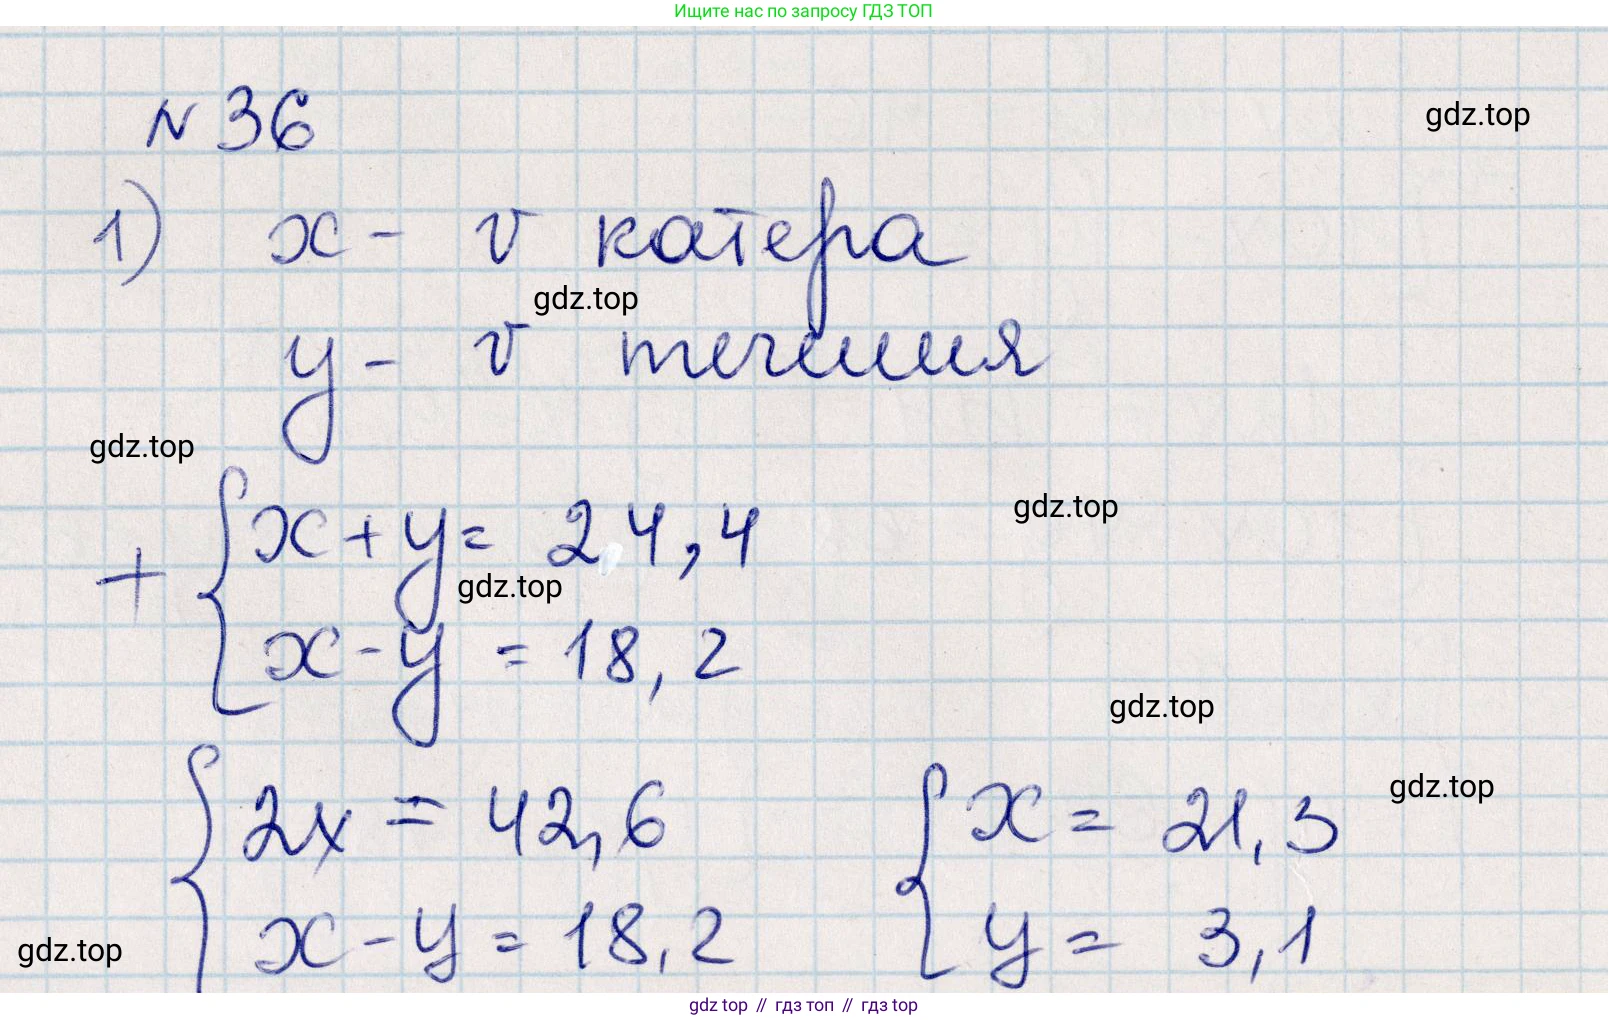 Ищите нас по запросу ГДЗ ТОП
№ 36
gdz.top
1) x - v катера
gdz.top
y - v течения
gdz.top
+ { x + y = 24,4
gdz.top
gdz.top
x - y = 18,2
gdz.top
{ 2x = 42,6 { x = 21,3
gdz.top
x - y = 18,2 y = 3,1
gdz.top
gdz top // гдз топ // гдз top